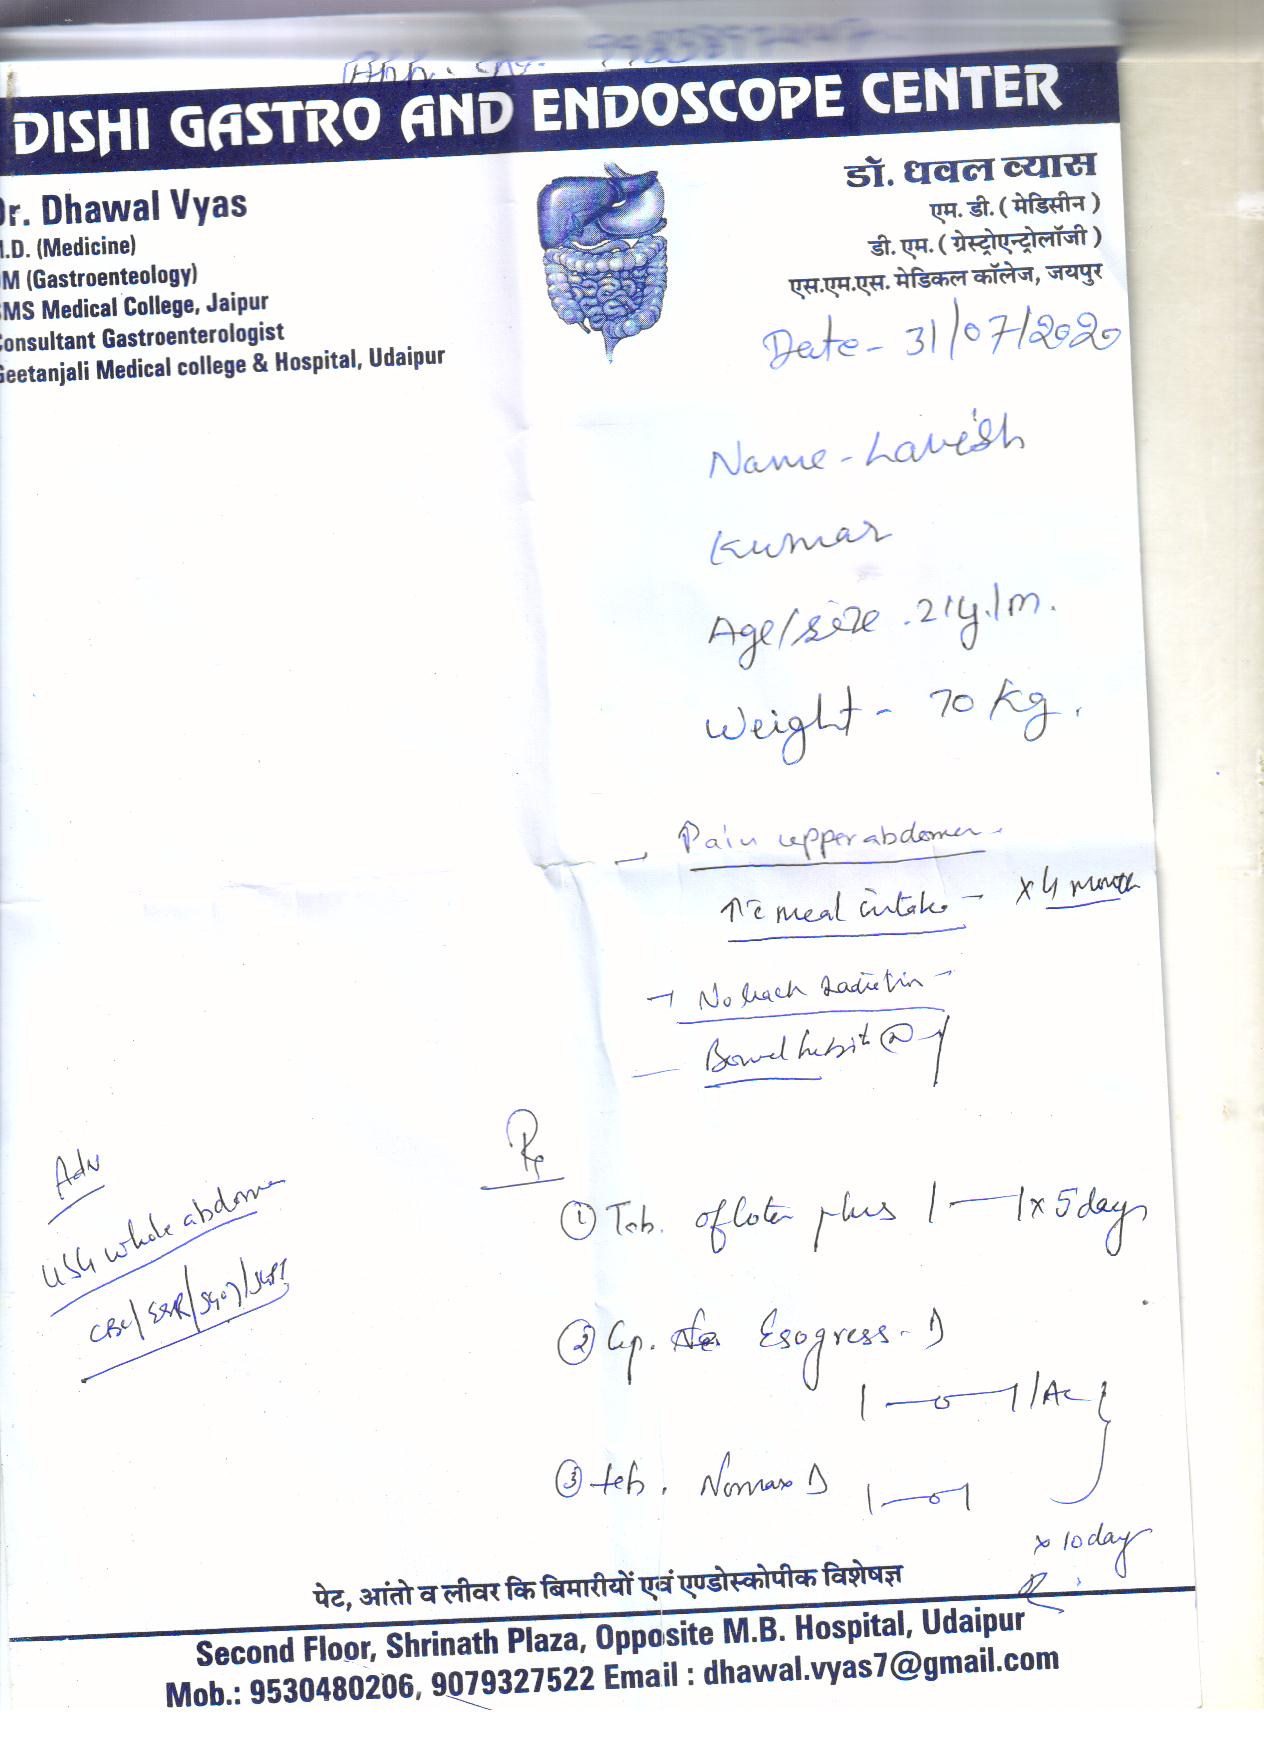 DISHI GASTRO AND ENDOSCOPE CENTER
r. Dhawal Vyas
.D. (Medicine)
M (Gastroenteology)
MS Medical College, Jaipur
onsultant Gastroenterologist
eetanjali Medical college & Hospital, Udaipur
डॉ. धवल व्यास
एम. डी. ( मेडिसीन )
डी. एम. ( ग्रेस्ट्रोएन्ट्रोलॉजी )
एस.एम.एस. मेडिकल कॉलेज, जयपुर
Date - 31/07/2020
Name - Lavish
Kumar
Age/ .21y./m.
Weight - 70 Kg.
Pain upper abdomen
meal intake - x 4 month
No back
Bowel habit
Adv
USG whole abdomen
CBC/ESR/
Rx
① Tab. plus 1 — 1 x 5 days
② Cap. Esogress - D
1 — 0 — 1 /AC
③ teb. Nomax D 1 — 0 — 1
x 10 day
पेट, आंतो व लीवर कि बिमारीयों एवं एण्डोस्कोपीक विशेषज्ञ
Second Floor, Shrinath Plaza, Opposite M.B. Hospital, Udaipur
Mob.: 9530480206, 9079327522 Email : dhawal.vyas7@gmail.com